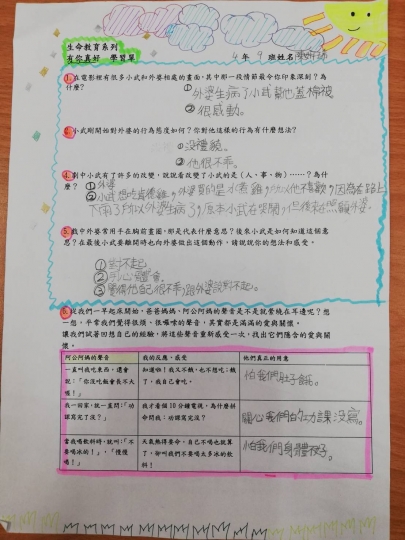 生命教育系列
有你真好 學習單
4年9班姓名
1.在電影裡有很多小武和外婆相處的畫面,其中那一段情節最令你印象深刻?為
什麼?
①外婆生病了小武幫他蓋棉被
②很感動。
小武剛開始對外婆的行為態度如何?你對他這樣的行為有什麼想法?
①沒禮貌。
②他很不乖。
4.劇中小武有了許多的改變,說說看改變了小武的是(人、事、物)……?為什
麼?
①外婆
下雨了所以外婆生病了,原本小武在哭鬧,但後來在照顧外婆。
5.戲中外婆常用手在胸前畫圈,那是代表什麼意思?後來小武是如何知道這個意
思?在最後小武要離開時也向外婆做出這個動作,請說說你的想法和感受。
①對不起
②用心體會。
③覺得他自己很不乖,跟外婆說對不起。
說我們一早起床開始,爸爸媽媽、阿公阿媽的聲音是不是就縈繞在耳邊呢?想
一想,平常我們覺得很煩、很囉嗦的聲音,其實都是滿滿的愛與關懷。
讓我們試著回想自己的經驗,將這些聲音重新感受一次,找出它們隱含的愛與關
懷。
阿公阿媽的聲音 我的反應、感受 他們真正的用意
一直叫我吃東西,還會
說:「你沒吃飯會長不大
喔!」
知道啦!我又不餓,也不想吃;餓
了,我自己會吃。
怕我們肚子餓。
我一回家,就一直問:「功
課寫完了沒?」
我才看個10分鐘電視,為什麼拼
命問我:功課寫完沒?
關心我們的功課沒寫。
當我喝飲料時,就叫:「不
要喝冰的!」,「慢慢
喝!」
天氣熱得要命,自己不喝也就算
了,卻叫我們不要喝太多冰的飲
料!
怕我們身體不好。